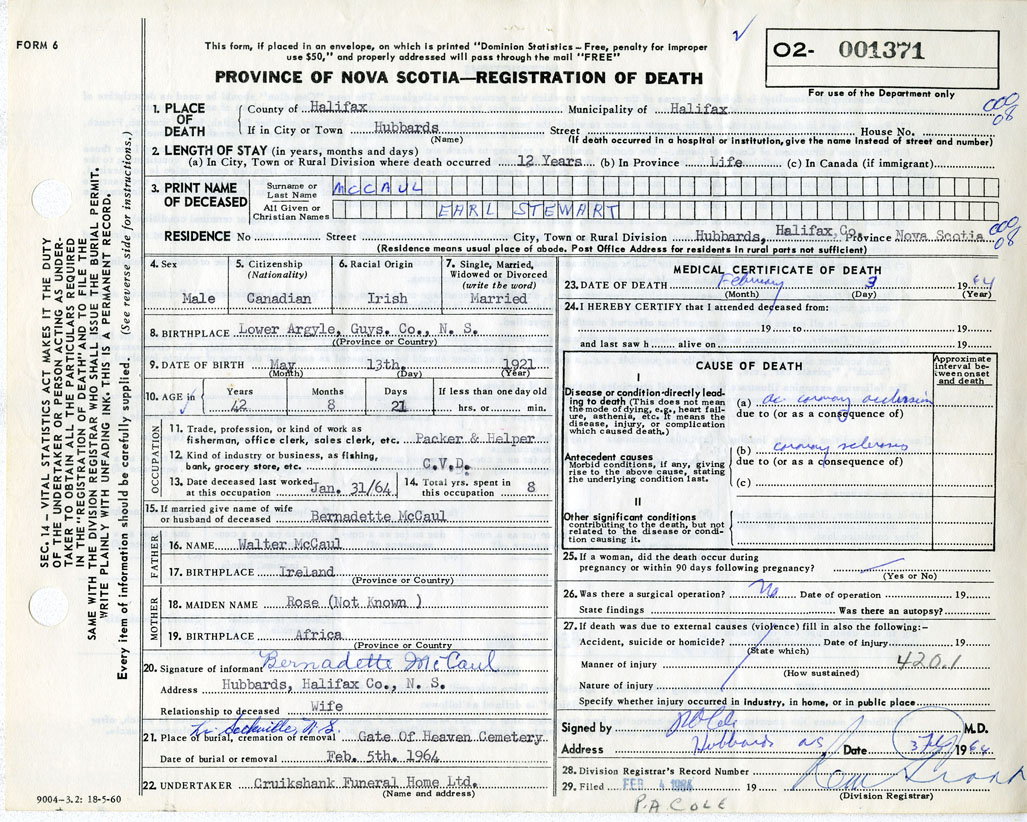 FORM 6
This form, if placed in an envelope, on which is printed "Dominion Statistics – Free, penalty for improper
use $50," and properly addressed will pass through the mail "FREE"
PROVINCE OF NOVA SCOTIA—REGISTRATION OF DEATH
O2- 001371
For use of the Department only
SEC. 14 – VITAL STATISTICS ACT MAKES IT THE DUTY
OF THE UNDERTAKER OR PERSON ACTING AS UNDER-
TAKER TO OBTAIN ALL THE PARTICULARS REQUIRED
IN THE "REGISTRATION OF DEATH" AND TO FILE THE
SAME WITH THE DIVISION REGISTRAR WHO SHALL ISSUE THE BURIAL PERMIT.
WRITE PLAINLY WITH UNFADING INK. THIS IS A PERMANENT RECORD.
Every item of information should be carefully supplied. (See reverse side for instructions.)
1. PLACE OF DEATH
County of Halifax Municipality of Halifax
000
08
If in City or Town Hubbards Street House No.
(Name) (If death occurred in a hospital or institution, give the name instead of street and number)
2. LENGTH OF STAY (in years, months and days)
(a) In City, Town or Rural Division where death occurred 12 Years (b) In Province Life (c) In Canada (if immigrant)
3. PRINT NAME OF DECEASED
Surname or Last Name McCAUL
All Given or Christian Names EARL STEWART
RESIDENCE No Street City, Town or Rural Division Hubbards, Halifax Co. Province Nova Scotia
000
08
(Residence means usual place of abode. Post Office Address for residents in rural parts not sufficient)
4. Sex
Male
5. Citizenship
(Nationality)
Canadian
6. Racial Origin
Irish
7. Single, Married,
Widowed or Divorced
(write the word)
Married
8. BIRTHPLACE Lower Argyle, Guys. Co., N. S.
(Province or Country)
9. DATE OF BIRTH May 13th, 1921
(Month) (Day) (Year)
10. AGE in
Years Months Days If less than one day old
42 8 21 hrs. or min.
OCCUPATION
11. Trade, profession, or kind of work as
fisherman, office clerk, sales clerk, etc. Packer & Helper
12. Kind of industry or business, as fishing,
bank, grocery store, etc. C.V.D.
13. Date deceased last worked
at this occupation Jan. 31/64
14. Total yrs. spent in
this occupation 8
15. If married give name of wife
or husband of deceased Bernadette McCaul
FATHER
16. NAME Walter McCaul
17. BIRTHPLACE Ireland
(Province or Country)
MOTHER
18. MAIDEN NAME Rose (Not Known )
19. BIRTHPLACE Africa
(Province or Country)
20. Signature of informant Bernadette McCaul
Address Hubbards, Halifax Co., N. S.
Relationship to deceased Wife
Sackville, N.S.
21. Place of burial, cremation or removal Gate Of Heaven Cemetery.
Date of burial or removal Feb. 5th. 1964
22. UNDERTAKER Cruikshank Funeral Home Ltd.
(Name and address)
9004–3.2: 18-5-60
MEDICAL CERTIFICATE OF DEATH
23. DATE OF DEATH February 3 1964
(Month) (Day) (Year)
24. I HEREBY CERTIFY that I attended deceased from:
19 to 19
and last saw h alive on 19
CAUSE OF DEATH
Approximate interval between onset and death
I
Disease or condition directly lead-
ing to death (This does not mean
the mode of dying, e.g., heart fail-
ure, asthenia, etc. It means the
disease, injury, or complication
which caused death.)
(a) ac coronary occlusion
due to (or as a consequence of)
Antecedent causes
Morbid conditions, if any, giving
rise to the above cause, stating
the underlying condition last.
(b) coronary sclerosis
due to (or as a consequence of)
(c)
II
Other significant conditions
contributing to the death, but not
related to the disease or condi-
tion causing it.
25. If a woman, did the death occur during
pregnancy or within 90 days following pregnancy?
(Yes or No)
26. Was there a surgical operation? No Date of operation 19
State findings Was there an autopsy?
27. If death was due to external causes (violence) fill in also the following:–
Accident, suicide or homicide? Date of injury 19
(State which)
Manner of injury 420.1
(How sustained)
Nature of injury
Specify whether injury occurred in industry, in home, or in public place
Signed by P A Cole M.D.
Address Hubbards NS Date 3 Feb 1964
28. Division Registrar's Record Number
29. Filed FEB 4 1964 19
(Division Registrar)
P.A COLE